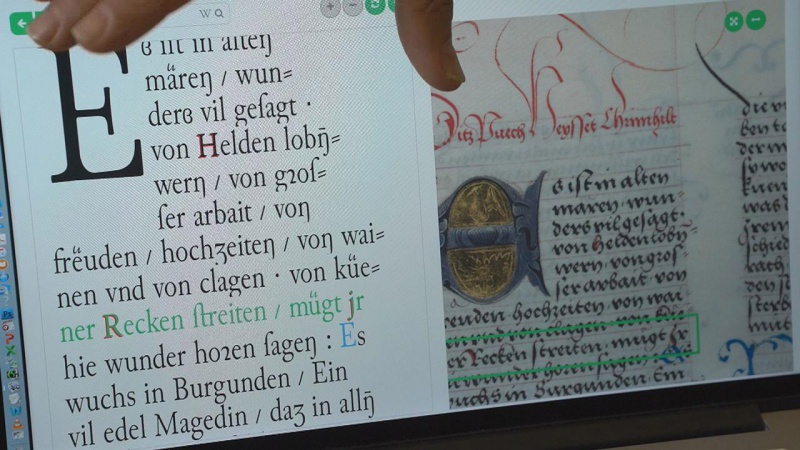 W
E
s iſt in alteŋ
märeŋ / wun=
ders vil geſagt ·
von Helden lobŋ̄=
werŋ / von gꝛoſ=
ſer arbait / voŋ
freüden / hochzeiteŋ / voŋ wai=
nen vnd von clagen · von küe=
ner Recken ſtreiten / mügt jr
hie wunder hoꝛen ſageŋ : Es
wuchs in Burgunden / Ein
vil edel Magedin / daʒ in allŋ̄
Ditz Puech Heysset Chrimhilt
E
s iſt in alten
maren wun=
ders vil geſagt.
von helden lobn̄=
wern von groſ
ſer arbait von
freuden hochzeiten von wai
nen vnd von clagen von küe
ner Recken ſtreiten. mugt Jr
hie wunder horen ſagen. Es
wuchs in Burgunden Ein